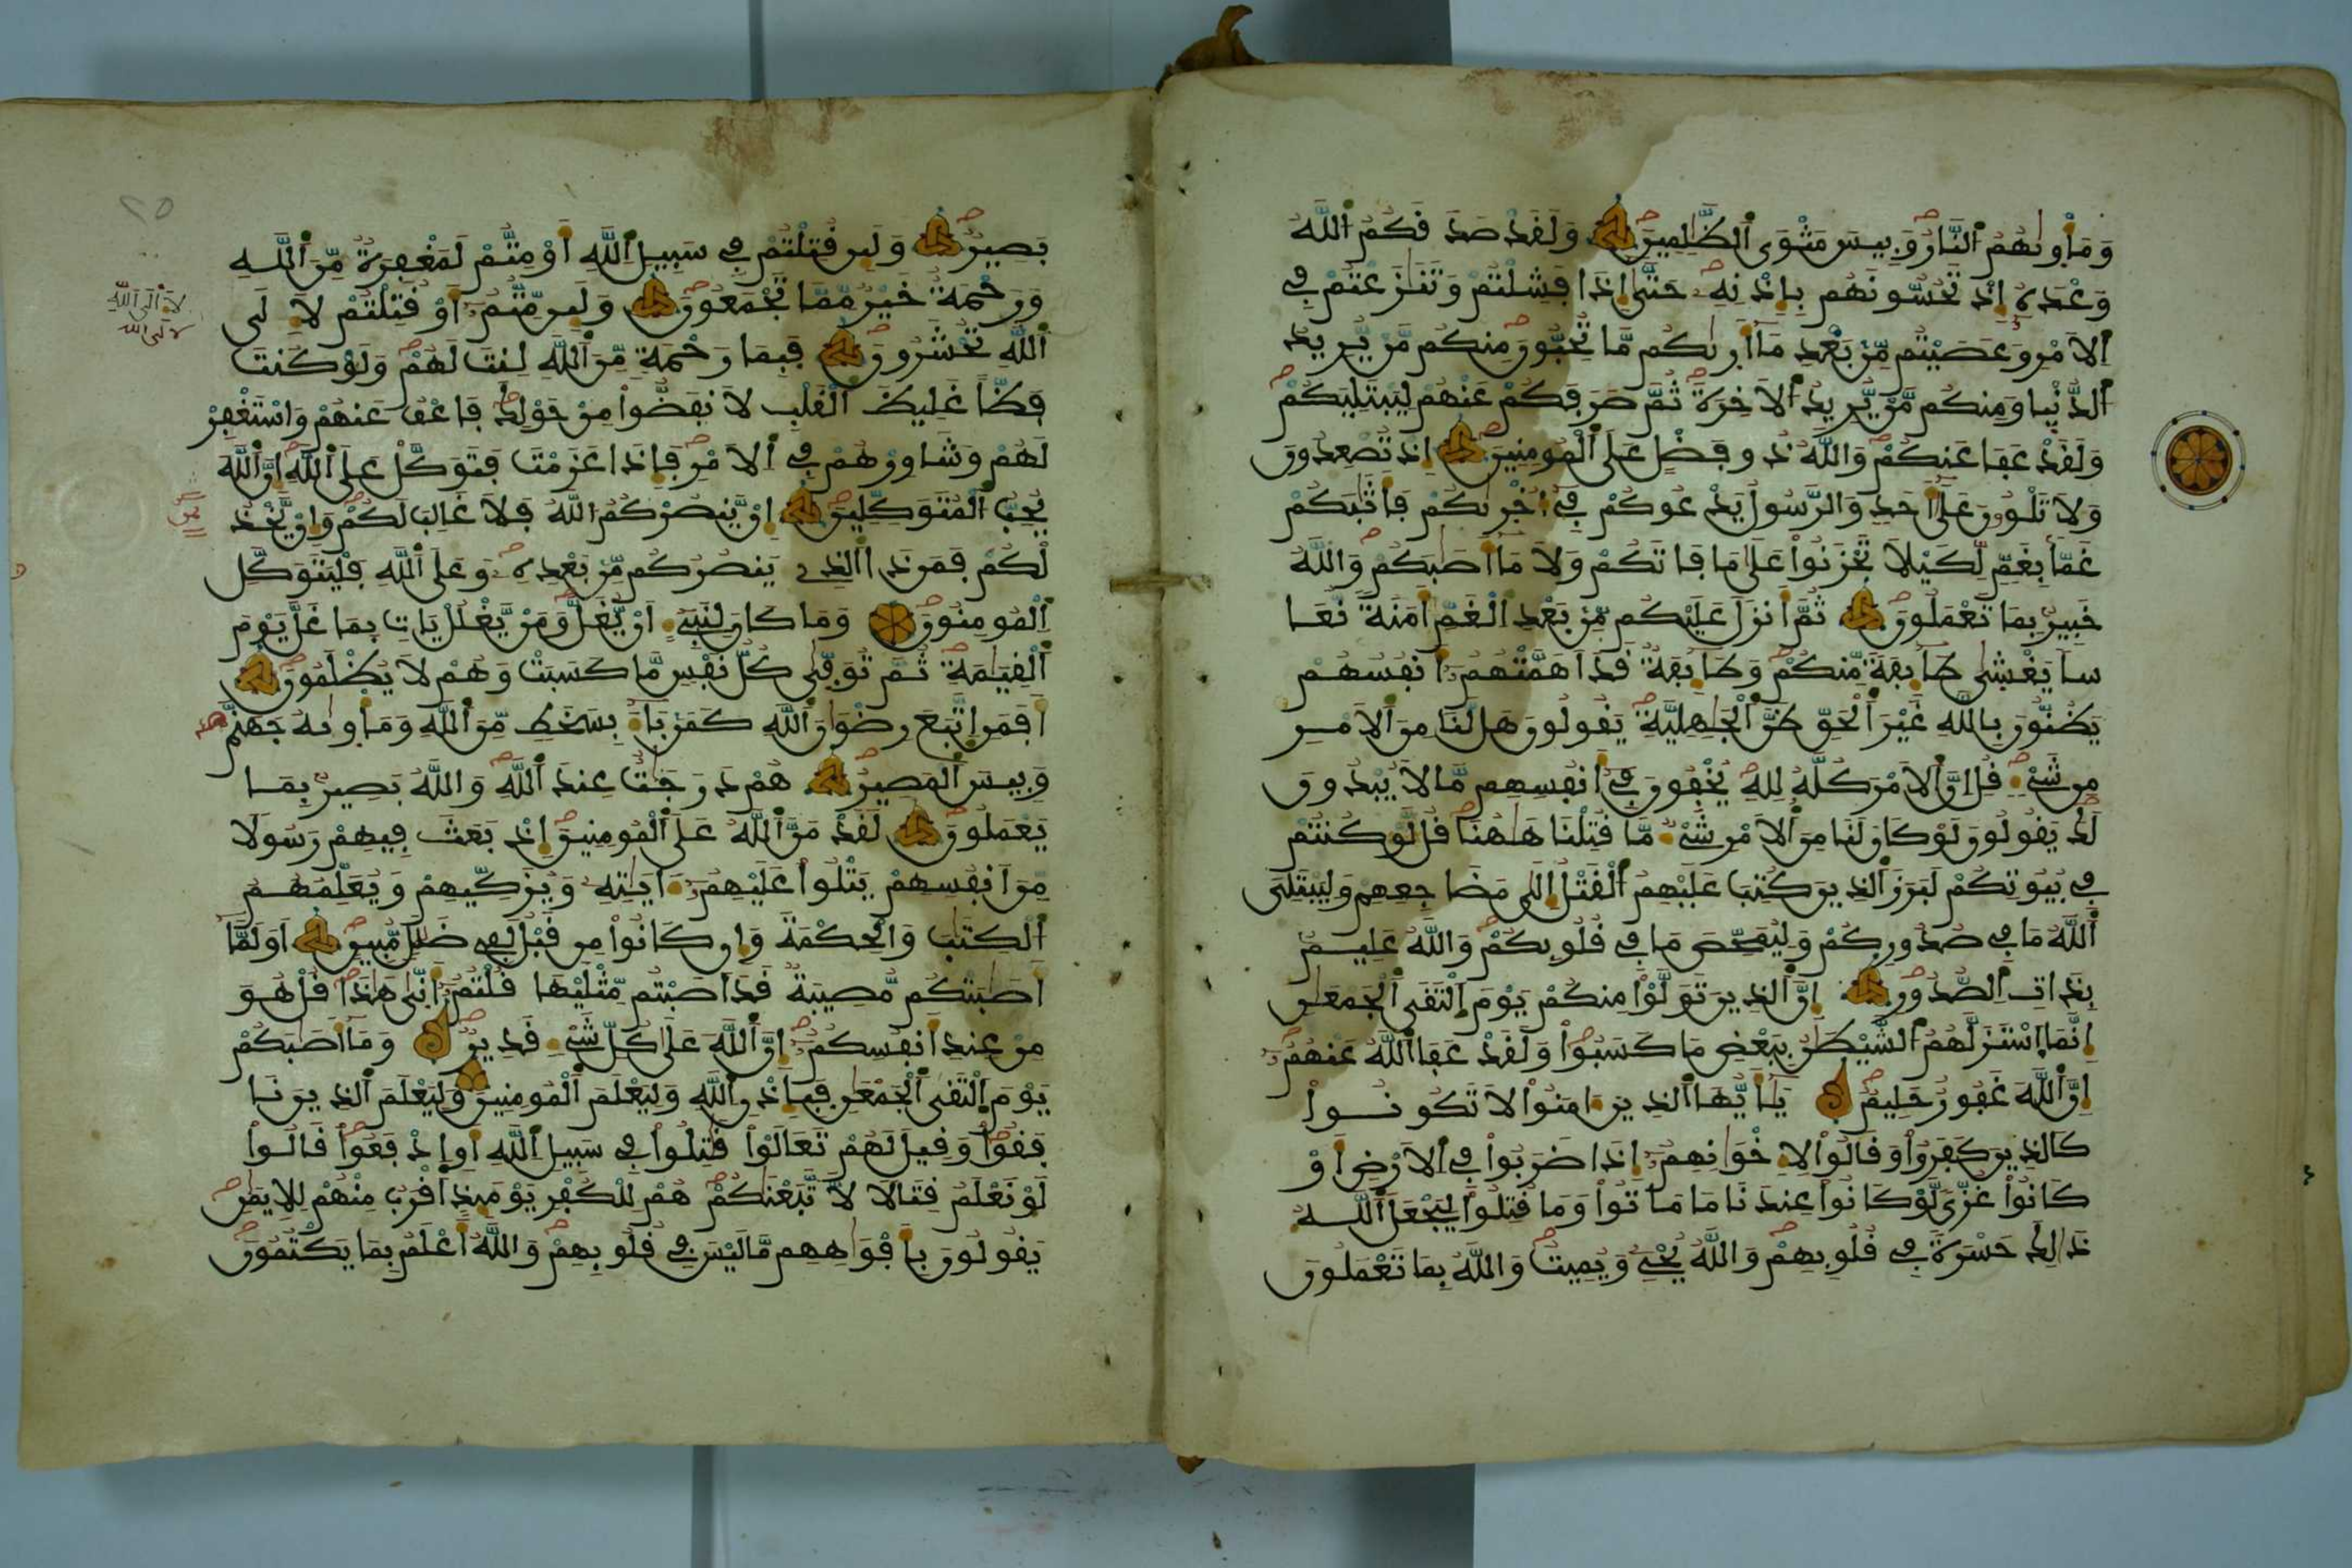 وَمَأْوِىٰهُمُ اُ۬لنَّارُ وَبِيسَ مَثْوَى اَ۬لظَّٰلِمِينَ وَلَقَدْ صَدَقَكُمُ اُ۬للَّهُ
وَعْدَهُ إِذْ تَحُسُّونَهُم بِإِذْنِهِ حَتَّىٰ إِذَا فَشِلْتُمْ وَتَنَٰزَعْتُمْ فِے
اِ۬لَامْرِ وَعَصَيْتُم مِّنۢ بَعْدِ مَا أَرٜىٰكُم مَّا تُحِبُّونَ مِنكُم مَّنْ يُّرِيدُ
اُ۬لدُّنْيا وَمِنكُم مَّنْ يُّرِيدُ اُ۬لَاخِرَةَ ثُمَّ صَرَفَكُمْ عَنْهُمْ لِيَبْتَلِيَكُمْ
وَلَقَدْ عَفَا عَنكُمْ وَاللَّهُ ذُو فَضْلٍ عَلَى اَ۬لْمُومِنِينَ إِذْ تُصْعِدُونَ
وَلَا تَلْوُۥنَ عَلَىٰ أَحَدٍ وَالرَّسُولُ يَدْعُوكُمْ فِے أُخْرٜىٰكُمْ فَأَثَٰبَكُمْ
غَمّاَۢ بِغَمٍّ لِّكَيْلَا تَحْزَنُواْ عَلَىٰ مَا فَاتَكُمْ وَلَا مَا أَصَٰبَكُمْ وَاللَّهُ
خَبِيرٌۢ بِمَا تَعْمَلُونَ ثُمَّ أَنزَلَ عَلَيْكُم مِّنۢ بَعْدِ اِ۬لْغَمِّ أَمَنَةً نُّعَا
ساً يَغْشٜىٰ طَآئِفَةً مِّنكُمْ وَطَآئِفَةٌ قَدَ اَهَمَّتْهُمُۥ أَنفُسُهُمْ
يَظُنُّونَ بِاللَّهِ غَيْرَ اَ۬لْحَقِّ ظَنَّ اَ۬لْجَٰهِلِيَّةِ يَقُولُونَ هَل لَّنَا مِنَ اَ۬لَامْرِ
مِن شَےْءٍ قُلِ اِنَّ اَ۬لَامْرَ كُلَّهُ لِلهِ يُخْفُونَ فِے أَنفُسِهِم مَّا لَا يُبْدُونَ
لَكَ يَقُولُونَ لَوْ كَانَ لَنَا مِنَ اَ۬لَامْرِ شَےْءٌ مَّا قُتِلْنَا هَٰهُنَا قُل لَّوْ كُنتُمْ
فِے بُيُوتِكُمْ لَبَرَزَ اَ۬لذِينَ كُتِبَ عَلَيْهِمُ اُ۬لْقَتْلُ إِلَىٰ مَضَاجِعِهِمْ وَلِيَبْتَلِىَ
اَ۬للَّهُ مَا فِے صُدُورِكُمْ وَلِيُمَحِّصَ مَا فِے قُلُوبِكُمْ وَاللَّهُ عَلِيمُۢ
بِذَاتِ اِ۬لصُّدُورِ إِنَّ اَ۬لذِينَ تَوَلَّوْاْ مِنكُمْ يَوْمَ اَ۪لْتَقَى اَ۬لْجَمْعَٰنِ
إِنَّمَا اَ۪سْتَزَلَّهُمُ اُ۬لشَّيْطَٰنُ بِبَعْضِ مَا كَسَبُواْ وَلَقَدْ عَفَا اَ۬للَّهُ عَنْهُمُۥ
إِنَّ اَ۬للَّهَ غَفُورٌ حَلِيمٌ يَٰأَيُّهَا اَ۬لذِينَ ءَامَنُواْ لَا تَكُونُواْ
كَالذِينَ كَفَرُواْ وَقَالُواْ لِإِخْوَٰنِهِمُۥ إِذَا ضَرَبُواْ فِے اِ۬لَارْضِ أَوْ
كَانُواْ غُزّىً لَّوْ كَانُواْ عِندَنَا مَا مَاتُواْ وَمَا قُتِلُواْ لِيَجْعَلَ اَ۬للَّهُ
ذَٰلِكَ حَسْرَةً فِے قُلُوبِهِمْ وَاللَّهُ يُحْىِۦ وَيُمِيتُ وَاللَّهُ بِمَا تَعْمَلُونَ
٢٥
بَصِيرٌ وَلَئِن قُتِلْتُمْ فِے سَبِيلِ اِ۬للَّهِ أَوْ مِتُّمْ لَمَغْفِرَةٌ مِّنَ اَ۬للَّهِ
وَرَحْمَةٌ خَيْرٌ مِّمَّا تَجْمَعُونَ وَلَئِن مِّتُّمُۥ أَوْ قُتِلْتُمْ لَإِلَى
اَ۬للَّهِ تُحْشَرُونَ فَبِمَا رَحْمَةٍ مِّنَ اَ۬للَّهِ لِنتَ لَهُمْ وَلَوْ كُنتَ
فَظّاً غَلِيظَ اَ۬لْقَلْبِ لَانفَضُّواْ مِنْ حَوْلِكَ فَاعْفُ عَنْهُمْ وَاسْتَغْفِرْ
لَهُمْ وَشَاوِرْهُمْ فِے اِ۬لَامْرِ فَإِذَا عَزَمْتَ فَتَوَكَّلْ عَلَى اَ۬للَّهِ إِنَّ اَ۬للَّهَ
يُحِبُّ اُ۬لْمُتَوَكِّلِينَ إِنْ يَّنصُرْكُمُ اُ۬للَّهُ فَلَا غَالِبَ لَكُمْ وَإِنْ يَّخْذُ
لْكُمْ فَمَن ذَا اَ۬لذِے يَنصُرُكُم مِّنۢ بَعْدِهِۦ وَعَلَى اَ۬للَّهِ فَلْيَتَوَكَّلِ
اِ۬لْمُومِنُونَ وَمَا كَانَ لِنَبِيٍٓءٍ اَنْ يُّغَلَّ وَمَنْ يَّغْلُلْ يَاتِ بِمَا غَلَّ يَوْمَ
اَ۬لْقِيَٰمَةِ ثُمَّ تُوَفّٜىٰ كُلُّ نَفْسٍ مَّا كَسَبَتْ وَهُمْ لَا يُظْلَمُونَ
أَفَمَنِ اِ۪تَّبَعَ رِضْوَٰنَ اَ۬للَّهِ كَمَنۢ بَآءَ بِسَخَطٍ مِّنَ اَ۬للَّهِ وَمَأْوِىٰهُ جَهَنَّمُ
وَبِيسَ اَ۬لْمَصِيرُ هُمْ دَرَجَٰتٌ عِندَ اَ۬للَّهِ وَاللَّهُ بَصِيرٌۢ بِمَا
يَعْمَلُونَ لَقَدْ مَنَّ اَ۬للَّهُ عَلَى اَ۬لْمُومِنِينَ إِذْ بَعَثَ فِيهِمْ رَسُولاً
مِّنَ اَنفُسِهِمْ يَتْلُواْ عَلَيْهِمُۥ ءَايَٰتِهِ وَيُزَكِّيهِمْ وَيُعَلِّمُهُمُ
اُ۬لْكِتَٰبَ وَالْحِكْمَةَ وَإِن كَانُواْ مِن قَبْلُ لَفِے ضَلَٰلٍ مُّبِينٍ أَوَلَمَّا
أَصَٰبَتْكُم مُّصِيبَةٌ قَدَ اَصَبْتُم مِّثْلَيْهَا قُلْتُمُۥ أَنّٜىٰ هَٰذَا قُلْ هُوَ
مِنْ عِندِ أَنفُسِكُمُۥ إِنَّ اَ۬للَّهَ عَلَىٰ كُلِّ شَےْءٍ قَدِيرٌ وَمَا أَصَٰبَكُمْ
يَوْمَ اَ۪لْتَقَى اَ۬لْجَمْعَٰنِ فَبِإِذْنِ اِ۬للَّهِ وَلِيَعْلَمَ اَ۬لْمُومِنِينَ وَلِيَعْلَمَ اَ۬لذِينَ نَا
فَقُواْ وَقِيلَ لَهُمْ تَعَالَوْاْ قَٰتِلُواْ فِے سَبِيلِ اِ۬للَّهِ أَوِ اِ۪دْفَعُواْ قَالُواْ
لَوْ نَعْلَمُ قِتَالاً لَّاتَّبَعْنَٰكُمْ هُمْ لِلْكُفْرِ يَوْمَئِذٍ أَقْرَبُ مِنْهُمْ لِلِايمَٰنِ
يَقُولُونَ بِأَفْوَٰهِهِم مَّا لَيْسَ فِے قُلُوبِهِمْ وَاللَّهُ أَعْلَمُ بِمَا يَكْتُمُونَ